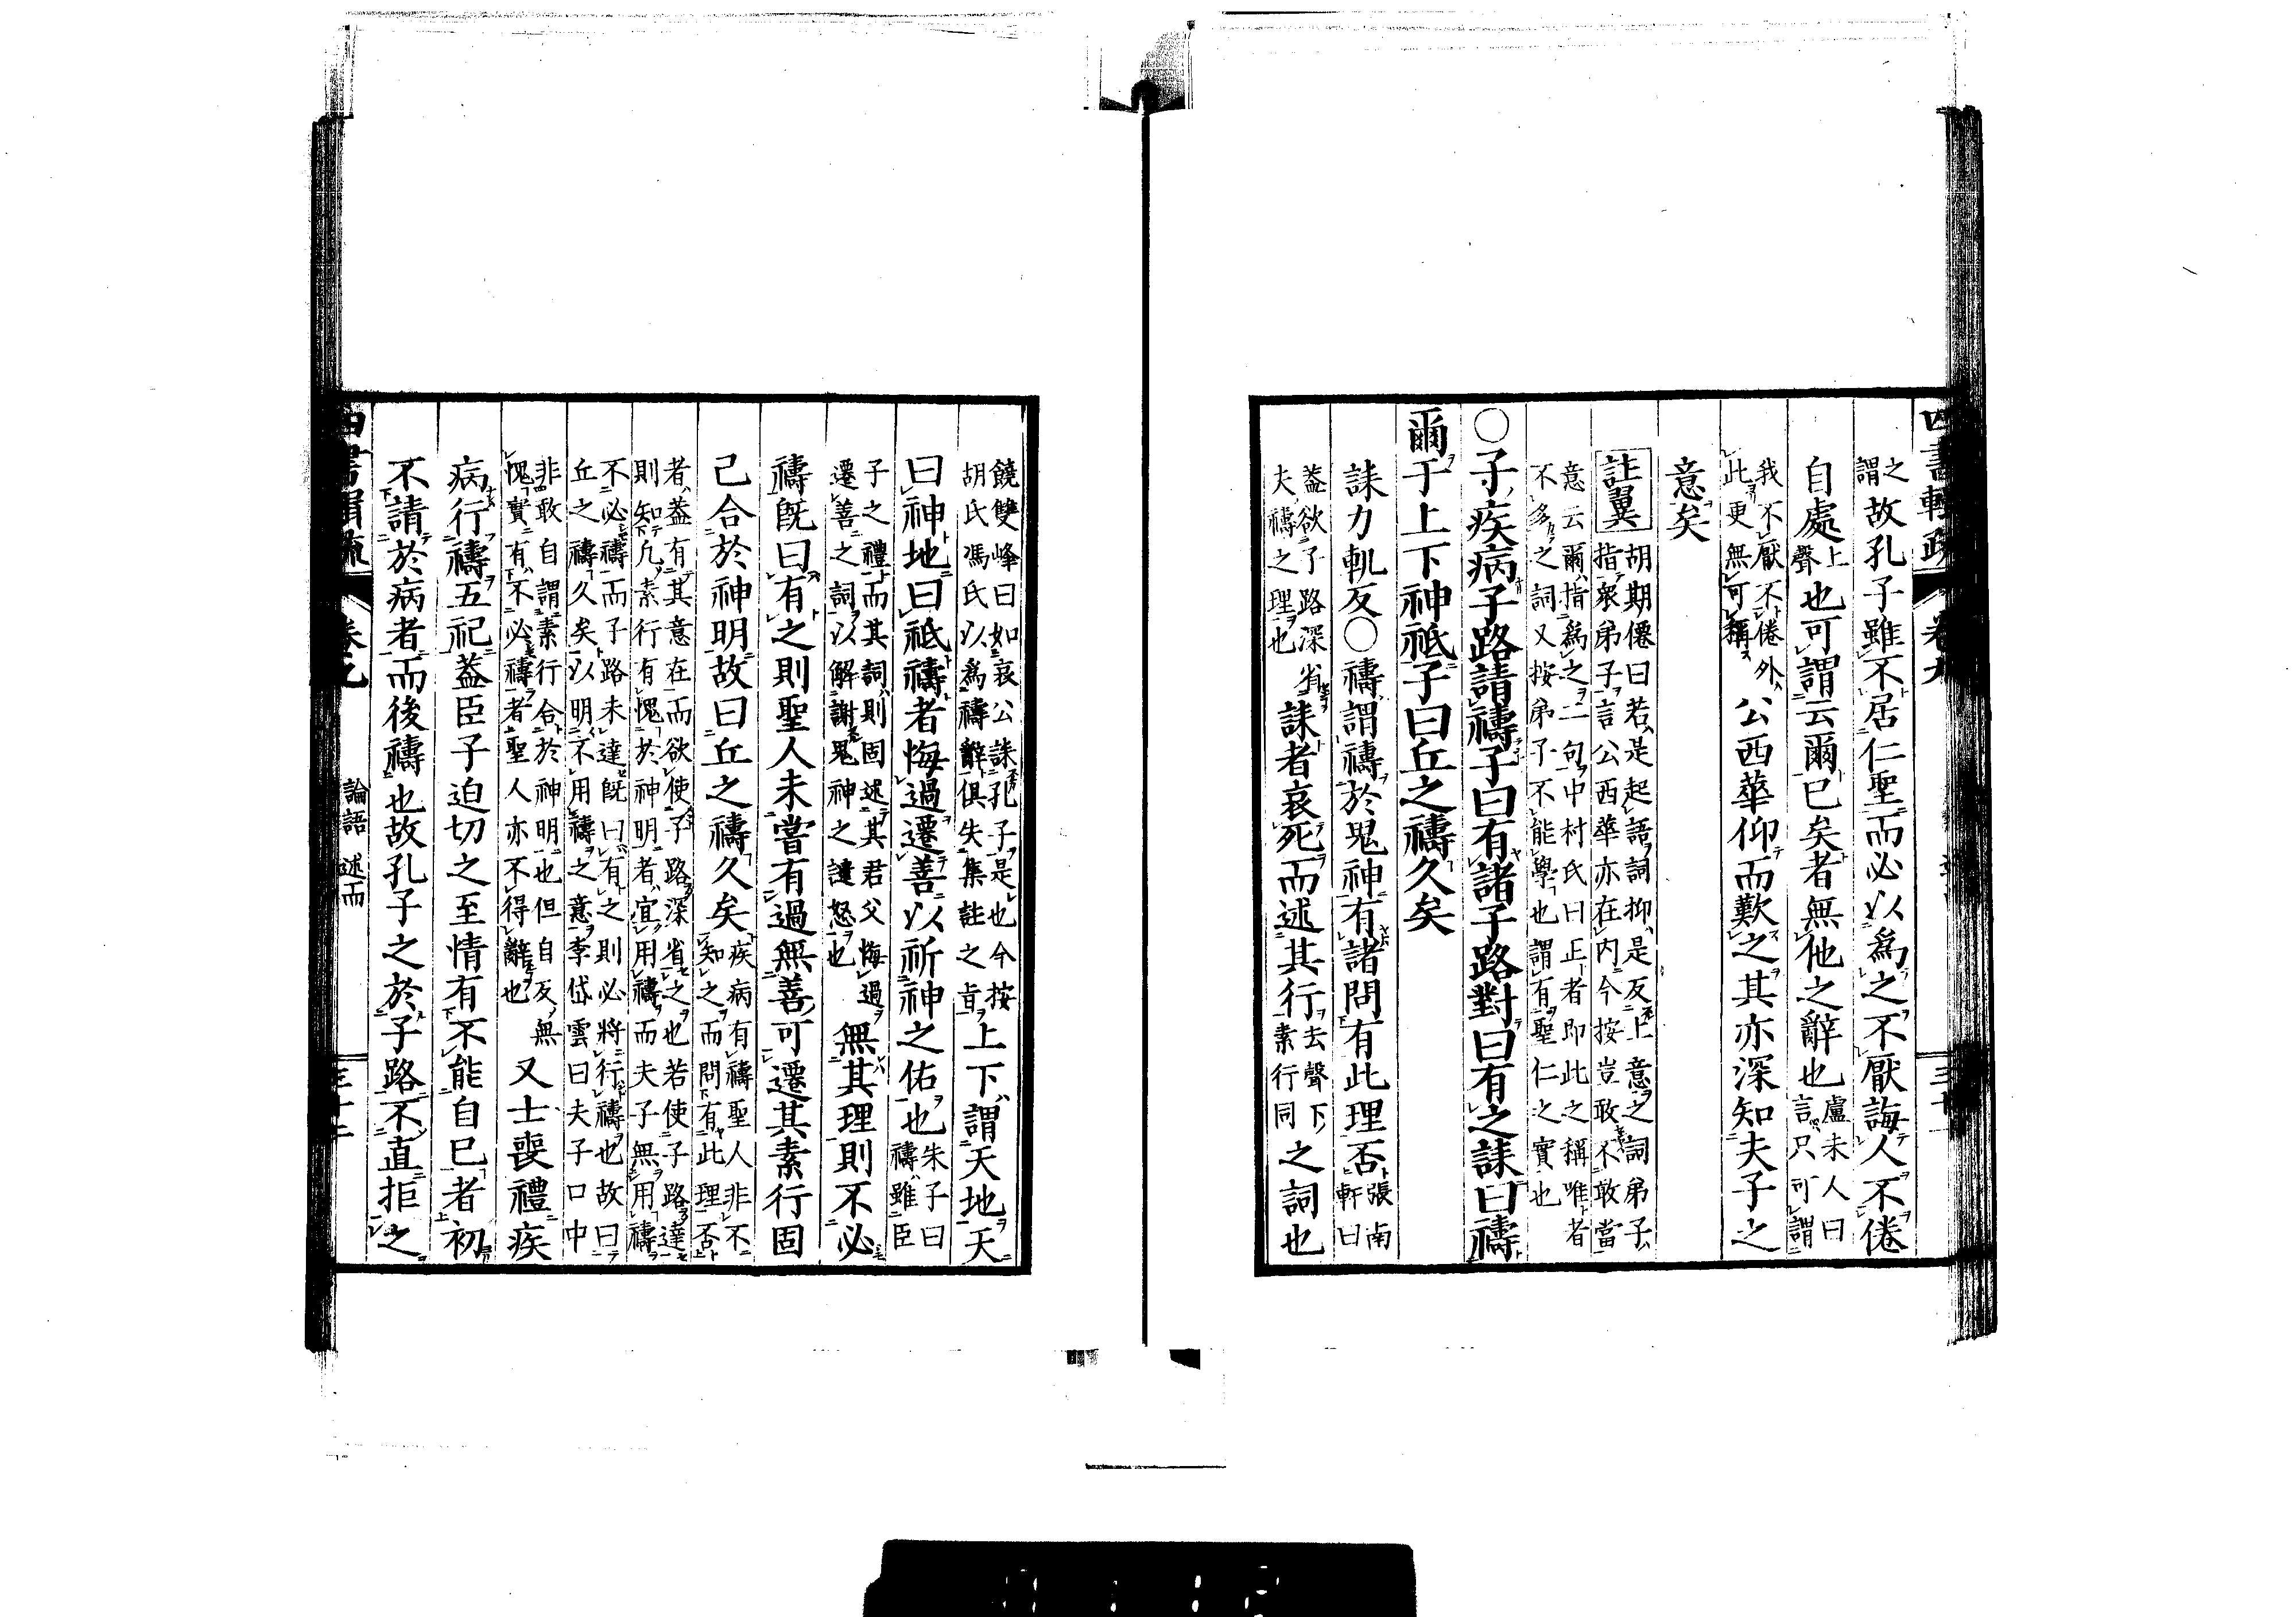 四書輯疏 卷九
之謂故孔子雖不居仁聖而必以爲之不厭誨人不倦
自處上聲也可謂云爾已矣者無他之辭也盧未人曰言只可謂
我不厭不倦外此更無可稱公西華仰而歎之其亦深知夫子之
意矣
註翼胡期僊曰若是起語詞抑是反上意之詞弟子指衆弟子言公西華亦在內今按豈敢不敢當
意云爾指爲之二句中村氏曰正者即此之稱唯者不多之詞又按弟子不能學也謂有聖仁之實也
○子疾病子路請禱子曰有諸子路對曰有之誄曰禱
爾于上下神祇子曰丘之禱久矣
誄力軌反○禱謂禱於鬼神有諸問有此理否張南軒曰
蓋欲子路深省夫禱之理也誄者哀死而述其行去聲下素行同之詞也
饒雙峰曰如哀公誄孔子是也今按胡氏馮氏以爲禱辭俱失集註之旨上下謂天地天
曰神地曰祇禱者悔過遷善以祈神之佑也朱子曰禱雖臣
子之禮而其詞則固述其君父悔過遷善之詞以解謝鬼神之譴怒也無其理則不必
禱既曰有之則聖人未嘗有過無善可遷其素行固
已合於神明故曰丘之禱久矣疾病有禱聖人非不知之而問有此理否
者蓋有其意在而欲使子路深省之也若使子路達則知凡素行有愧於神明者宜用禱而夫子無用禱
不必禱而子路未達既曰有之則必將行禱也故曰丘之禱久矣以明不用禱之意李岱雲曰夫子口中
非敢自謂素行合於神明也但自反無愧實有不必禱者聖人亦不得辭也又士喪禮疾
病行禱五祀蓋臣子迫切之至情有不能自已者初
不請於病者而後禱也故孔子之於子路不直拒之
四書輯疏 卷九 論語 述而 三十二